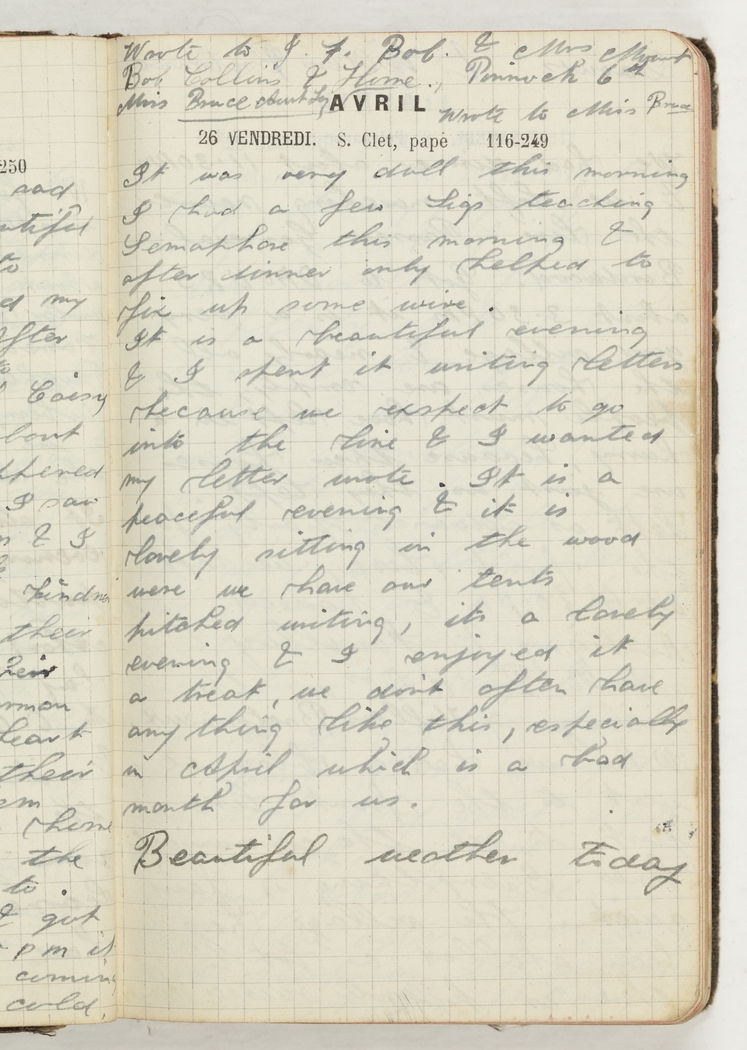 250
sad
to
ed my
after
to
Coisy
bout
thered
I saw
& I
kindn
their
their
rman
heart
their
home
the
to.
& got
pm it
coming
cold.
Wrote to J. F. Bob. & Mrs Mount
Bob Collins & Home., Pinnock 6th
Miss Bruce
AVRIL
Wrote to Miss Bruce
26 VENDREDI. S. Clet, pape 116-249
It was very dull this morning
I had a few Sigs teaching
Semaphore this morning &
after dinner only helped to
fix up some wire.
It is a beautiful evening
& I spent it writing letters
because we expect to go
into the line & I wanted
my letter wrote. It is a
peaceful evening & it is
lovely sitting in the wood
were we have our tents
pitched writing, its a lovely
evening & I enjoyed it
a treat, we dont often have
anything like this, especially
in April which is a bad
month for us.
Beautiful weather today